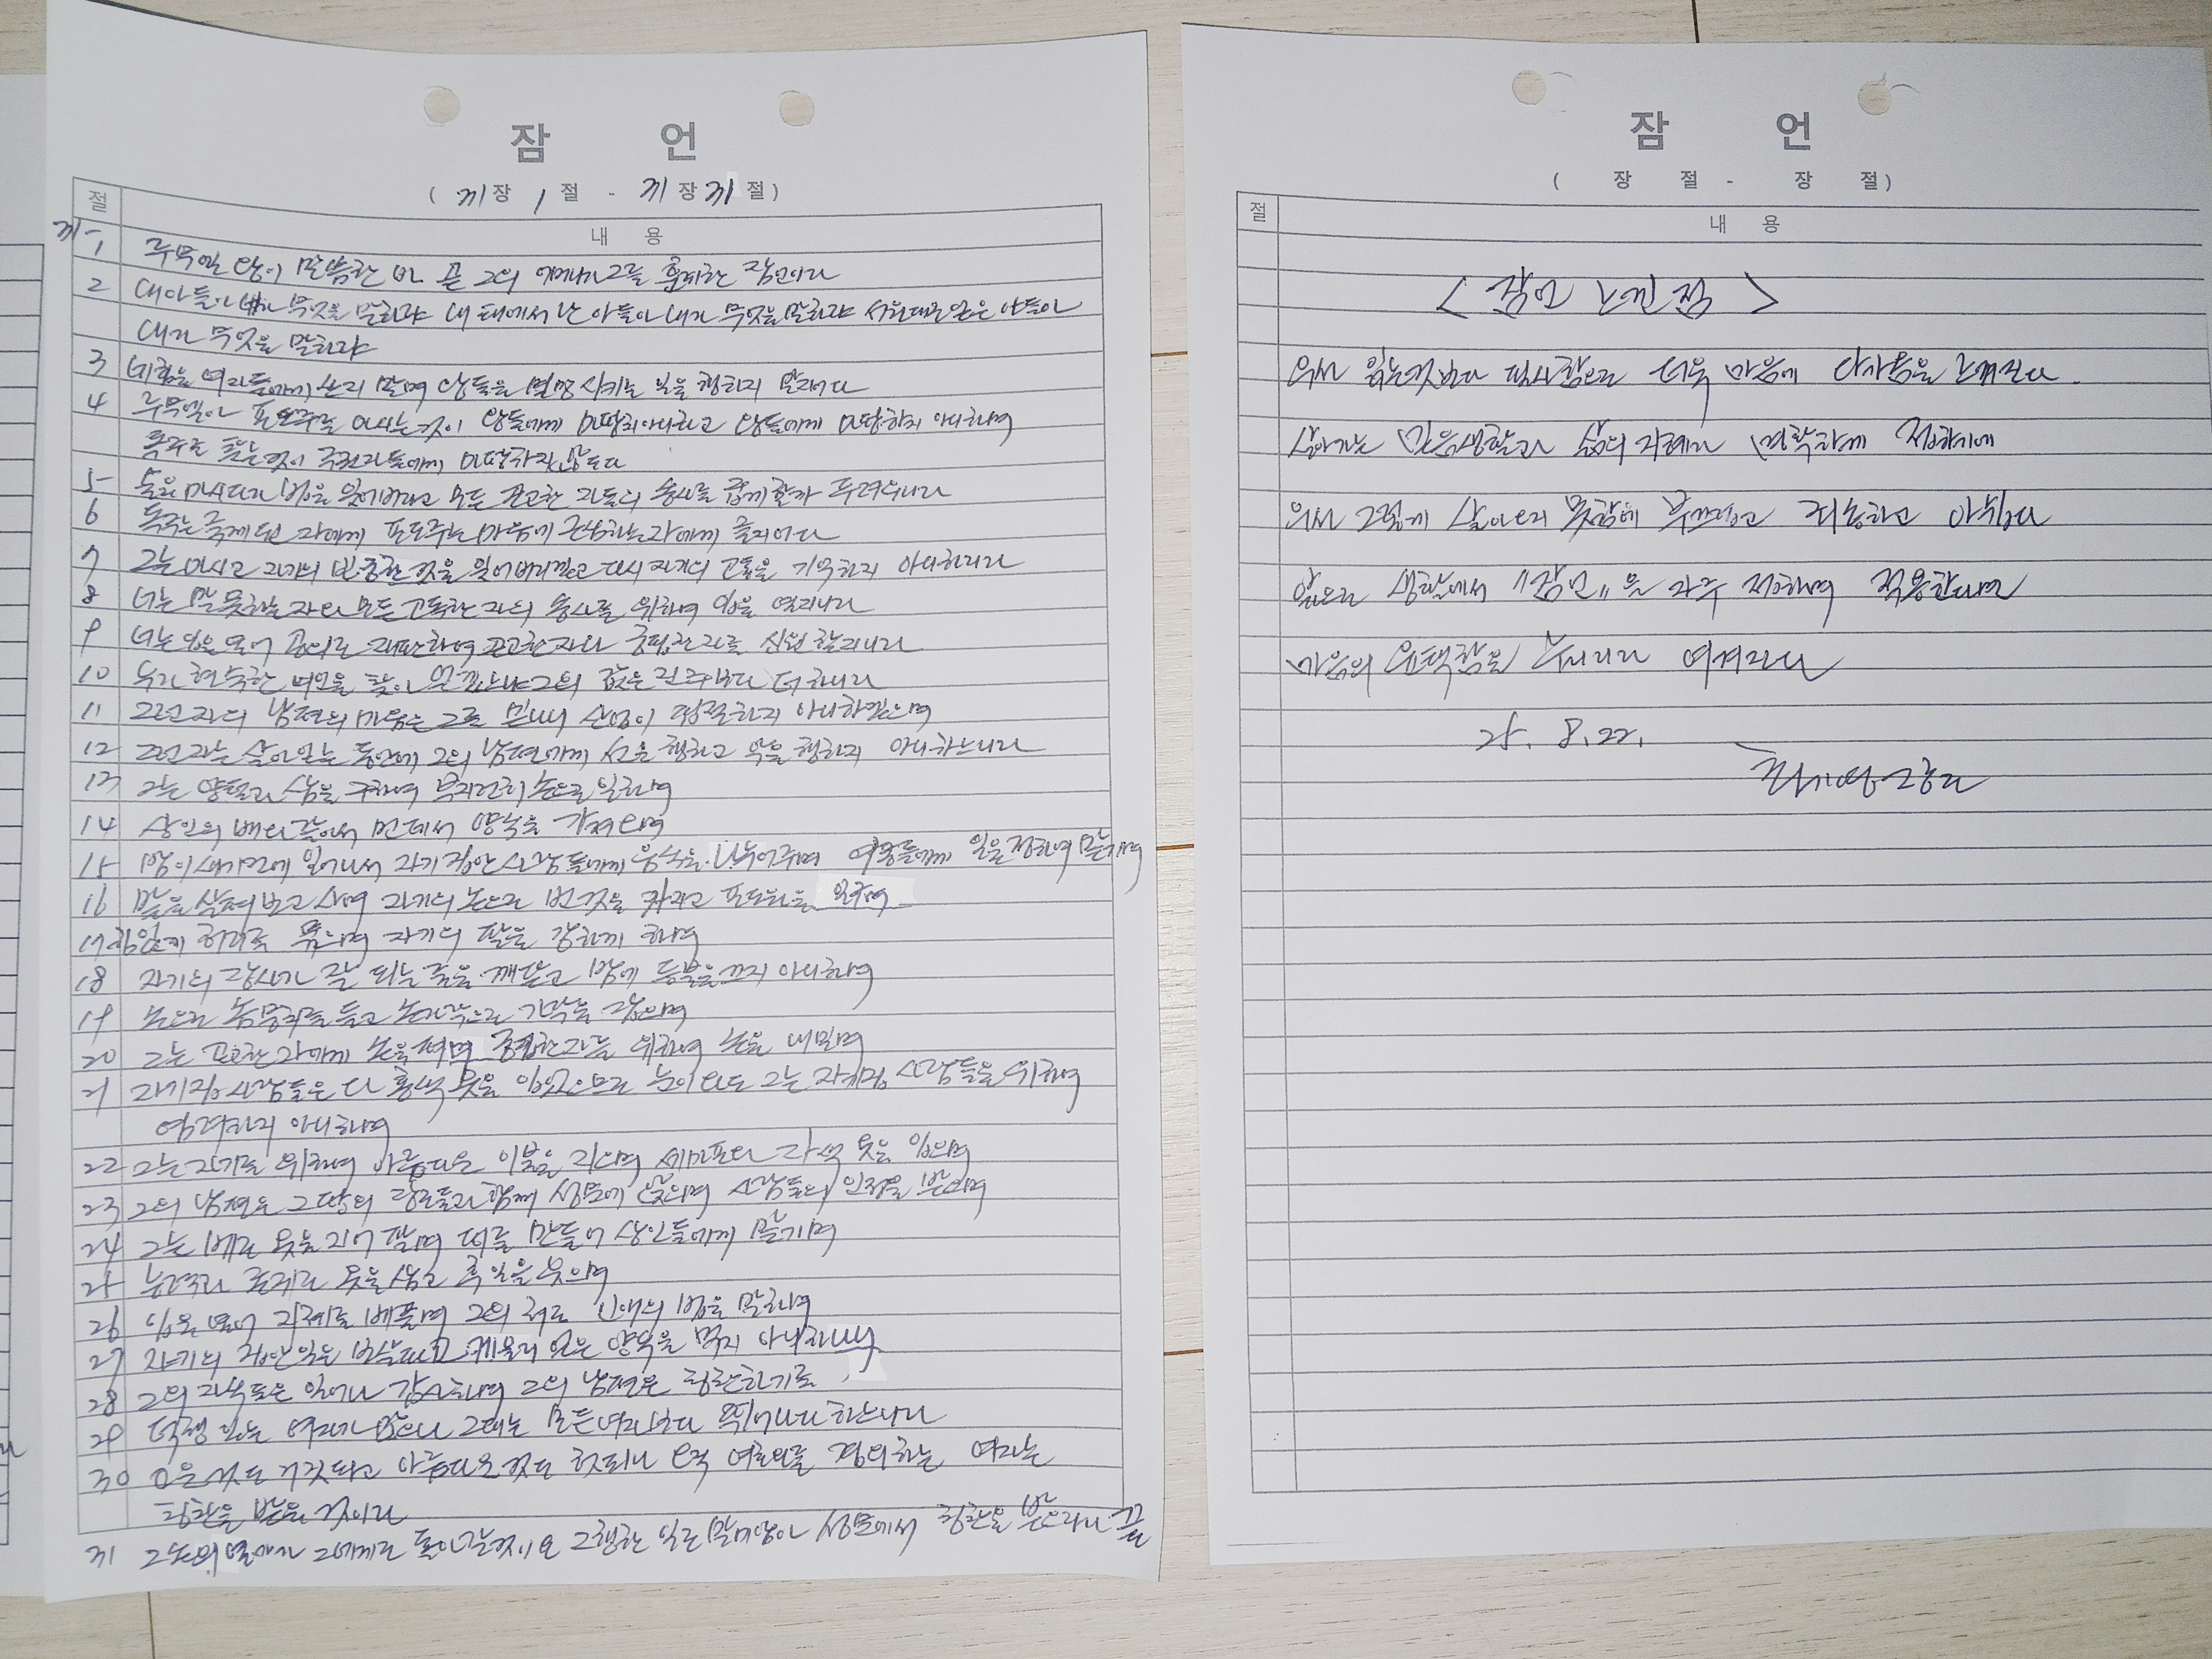 잠 언
( 31 장 1 절 - 31 장 31 절 )
절
내 용
31-1 르무엘 왕이 말씀한 바 곧 그의 어머니가 그를 훈계한 잠언이라
2 내 아들아 내가 무엇을 말하랴 내 태에서 난 아들아 내가 무엇을 말하랴 서원대로 얻은 아들아
내가 무엇을 말하랴
3 네 힘을 여자들에게 쓰지 말며 왕들을 멸망시키는 일을 행하지 말지어다
4 르무엘아 포도주를 마시는 것이 왕들에게 마땅치 아니하고 왕들에게 마땅하지 아니하며
독주를 찾는 것이 주권자들에게 마땅하지 않도다
5 술을 마시다가 법을 잊어버리고 모든 곤고한 자들의 송사를 굽게 할까 두려우니라
6 독주는 죽게 된 자에게 포도주는 마음에 근심하는 자에게 줄지어다
7 그는 마시고 자기의 빈궁한 것을 잊어버리겠고 다시 자기의 고통을 기억하지 아니하리라
8 너는 말 못하는 자와 모든 고독한 자의 송사를 위하여 입을 열지니라
9 너는 입을 열어 공의로 재판하여 곤고한 자와 궁핍한 자를 신원할지니라
10 누가 현숙한 여인을 찾아 얻겠느냐 그의 값은 진주보다 더하니라
11 그런 자의 남편의 마음은 그를 믿나니 산업이 핍절하지 아니하겠으며
12 그런 자는 살아 있는 동안에 그의 남편에게 선을 행하고 악을 행하지 아니하느니라
13 그는 양털과 삼을 구하여 부지런히 손으로 일하며
14 상인의 배와 같아서 먼 데서 양식을 가져오며
15 밤이 새기 전에 일어나서 자기 집안 사람들에게 음식을 나누어 주며 여종들에게 일을 정하여 맡기며
16 밭을 살펴 보고 사며 자기의 손으로 번 것을 가지고 포도원을 일구며
17 힘 있게 허리를 묶으며 자기의 팔을 강하게 하며
18 자기의 장사가 잘 되는 줄을 깨닫고 밤에 등불을 끄지 아니하며
19 손으로 솜뭉치를 들고 손가락으로 가락을 잡으며
20 그는 곤고한 자에게 손을 펴며 궁핍한 자를 위하여 손을 내밀며
21 자기 집 사람들은 다 홍색 옷을 입었으므로 눈이 와도 그는 자기 집 사람들을 위하여
염려하지 아니하며
22 그는 자기를 위하여 아름다운 이불을 지으며 세마포와 자색 옷을 입으며
23 그의 남편은 그 땅의 장로들과 함께 성문에 앉으며 사람들의 인정을 받으며
24 그는 베로 옷을 지어 팔며 띠를 만들어 상인들에게 맡기며
25 능력과 존귀로 옷을 삼고 후일을 웃으며
26 입을 열어 지혜를 베풀며 그의 혀로 인애의 법을 말하며
27 자기의 집안 일을 보살피고 게을리 얻은 양식을 먹지 아니하나니
28 그의 자식들은 일어나 감사하며 그의 남편은 칭찬하기를
29 덕행 있는 여자가 많으나 그대는 모든 여자보다 뛰어나다 하느니라
30 고운 것도 거짓되고 아름다운 것도 헛되나 오직 여호와를 경외하는 여자는
칭찬을 받을 것이라
31 그 손의 열매가 그에게로 돌아갈 것이요 그 행한 일로 말미암아 성문에서 칭찬을 받으리라 끝
잠 언
( 장 절 - 장 절 )
절
내 용
< 잠언 느낀점 >
우선 읽는것보다 필사함으로 더욱 마음에 다가옴을 느껴진다.
살아가는 믿음생활과 삶의 지혜가 명확하게 접하기에
우선 그렇게 살아오지 못함에 부끄럽고 죄송하고 아쉽다
앞으로 생활에서 "잠언"을 자주 접하며 적용한다면
마음의 윤택함을 누리리라 여겨진다
25. 8. 22.